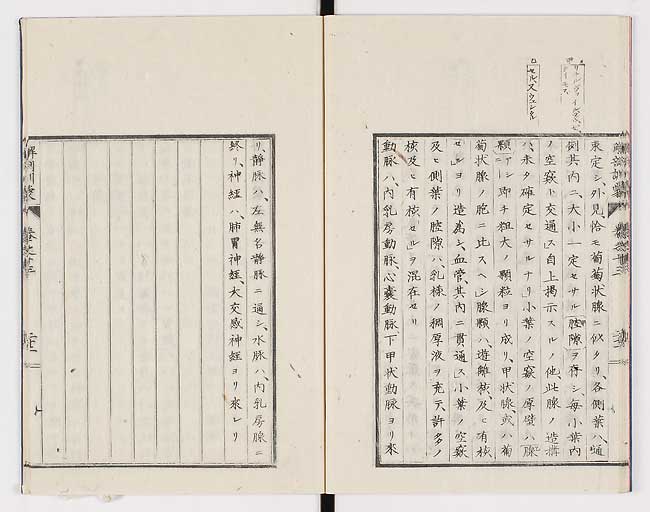 未定シ外見、恰モ葡萄状腺ニ似タリ、各側葉ハ、
側其内ニ、大小一定セサル腔隙ヲ存シ、毎小葉内
ノ空竅ト交通ス自上掲示スルノ他、此腺ノ造構
ハ、未タ確定セサルナリ」小葉ノ空竅ノ厚壁ハ腺
顆アン即チ粗大ノ顆粒ヨリ成リ、甲状腺或ハ葡
萄状腺ノ胞ニ比スヘシ」腺顆ハ、遊離核、及ヒ有核
セルヨリ造為シ、血管、其内ニ貫通ス」小葉ノ空竅
及ヒ側葉ノ腔隙ハ、乳様ノ稠厚液ヲ充テ、許多ノ
核及ヒ有核セルヲ混在セリ
動脉ハ、内乳房動脉、心嚢動脉、下甲状動脉ヨリ来
リ、静脉ハ、左無名静脉ニ通シ、水脉ハ、内乳房腺ニ
終リ、神経ハ、肺胃神経、大交感神経ヨリ来レリ